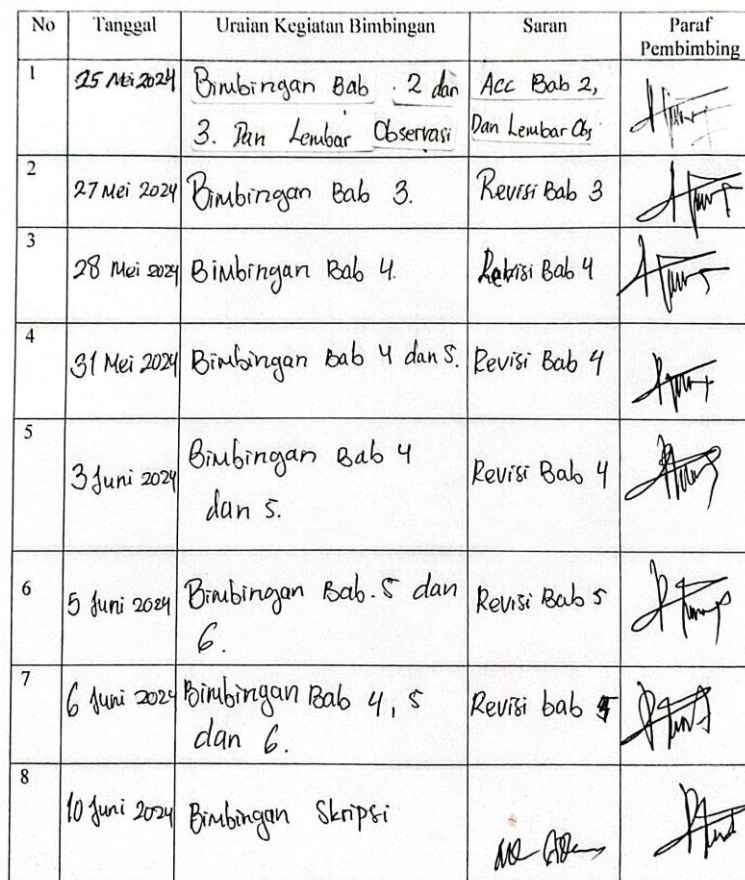 No Tanggal Uraian Kegiatan Bimbingan Saran Paraf
Pembimbing
1 25 Mei 2024 Bimbingan Bab . 2 dan Acc Bab 2,
3. Dan Lembar Observasi Dan Lembar Obs
2 27 Mei 2024 Bimbingan Bab 3. Revisi Bab 3
3 28 Mei 2024 Bimbingan Bab 4. Revisi Bab 4
4 31 Mei 2024 Bimbingan Bab 4 dan 5. Revisi Bab 4
5 3 Juni 2024 Bimbingan Bab 4 Revisi Bab 4
dan 5.
6 5 Juni 2024 Bimbingan Bab. 5 dan Revisi Bab 5
6.
7 6 Juni 2024 Bimbingan Bab 4, 5 Revisi bab
dan 6.
8 10 Juni 2024 Bimbingan Skripsi